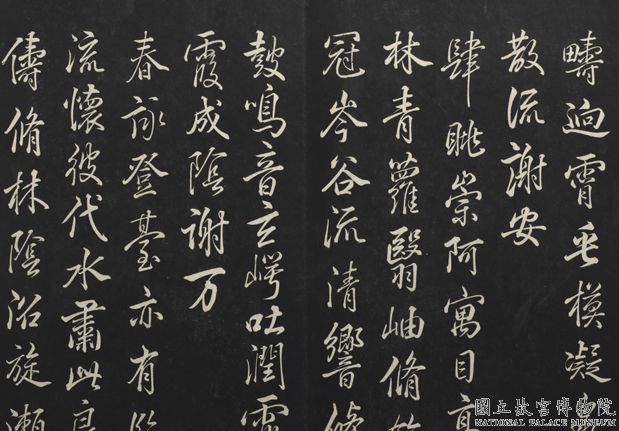 疇逈霄垂模凝
散流謝安
肆眺崇阿寓目高
林青蘿翳岫脩竹
冠岑谷流清響條
鼓鳴音玄崿吐潤霏
霞成陰謝万
春詠登臺亦有臨
流懷彼伐木肅此良
儔脩林陰沼旋瀨
國立故宮博物院
NATIONAL PALACE MUSEUM